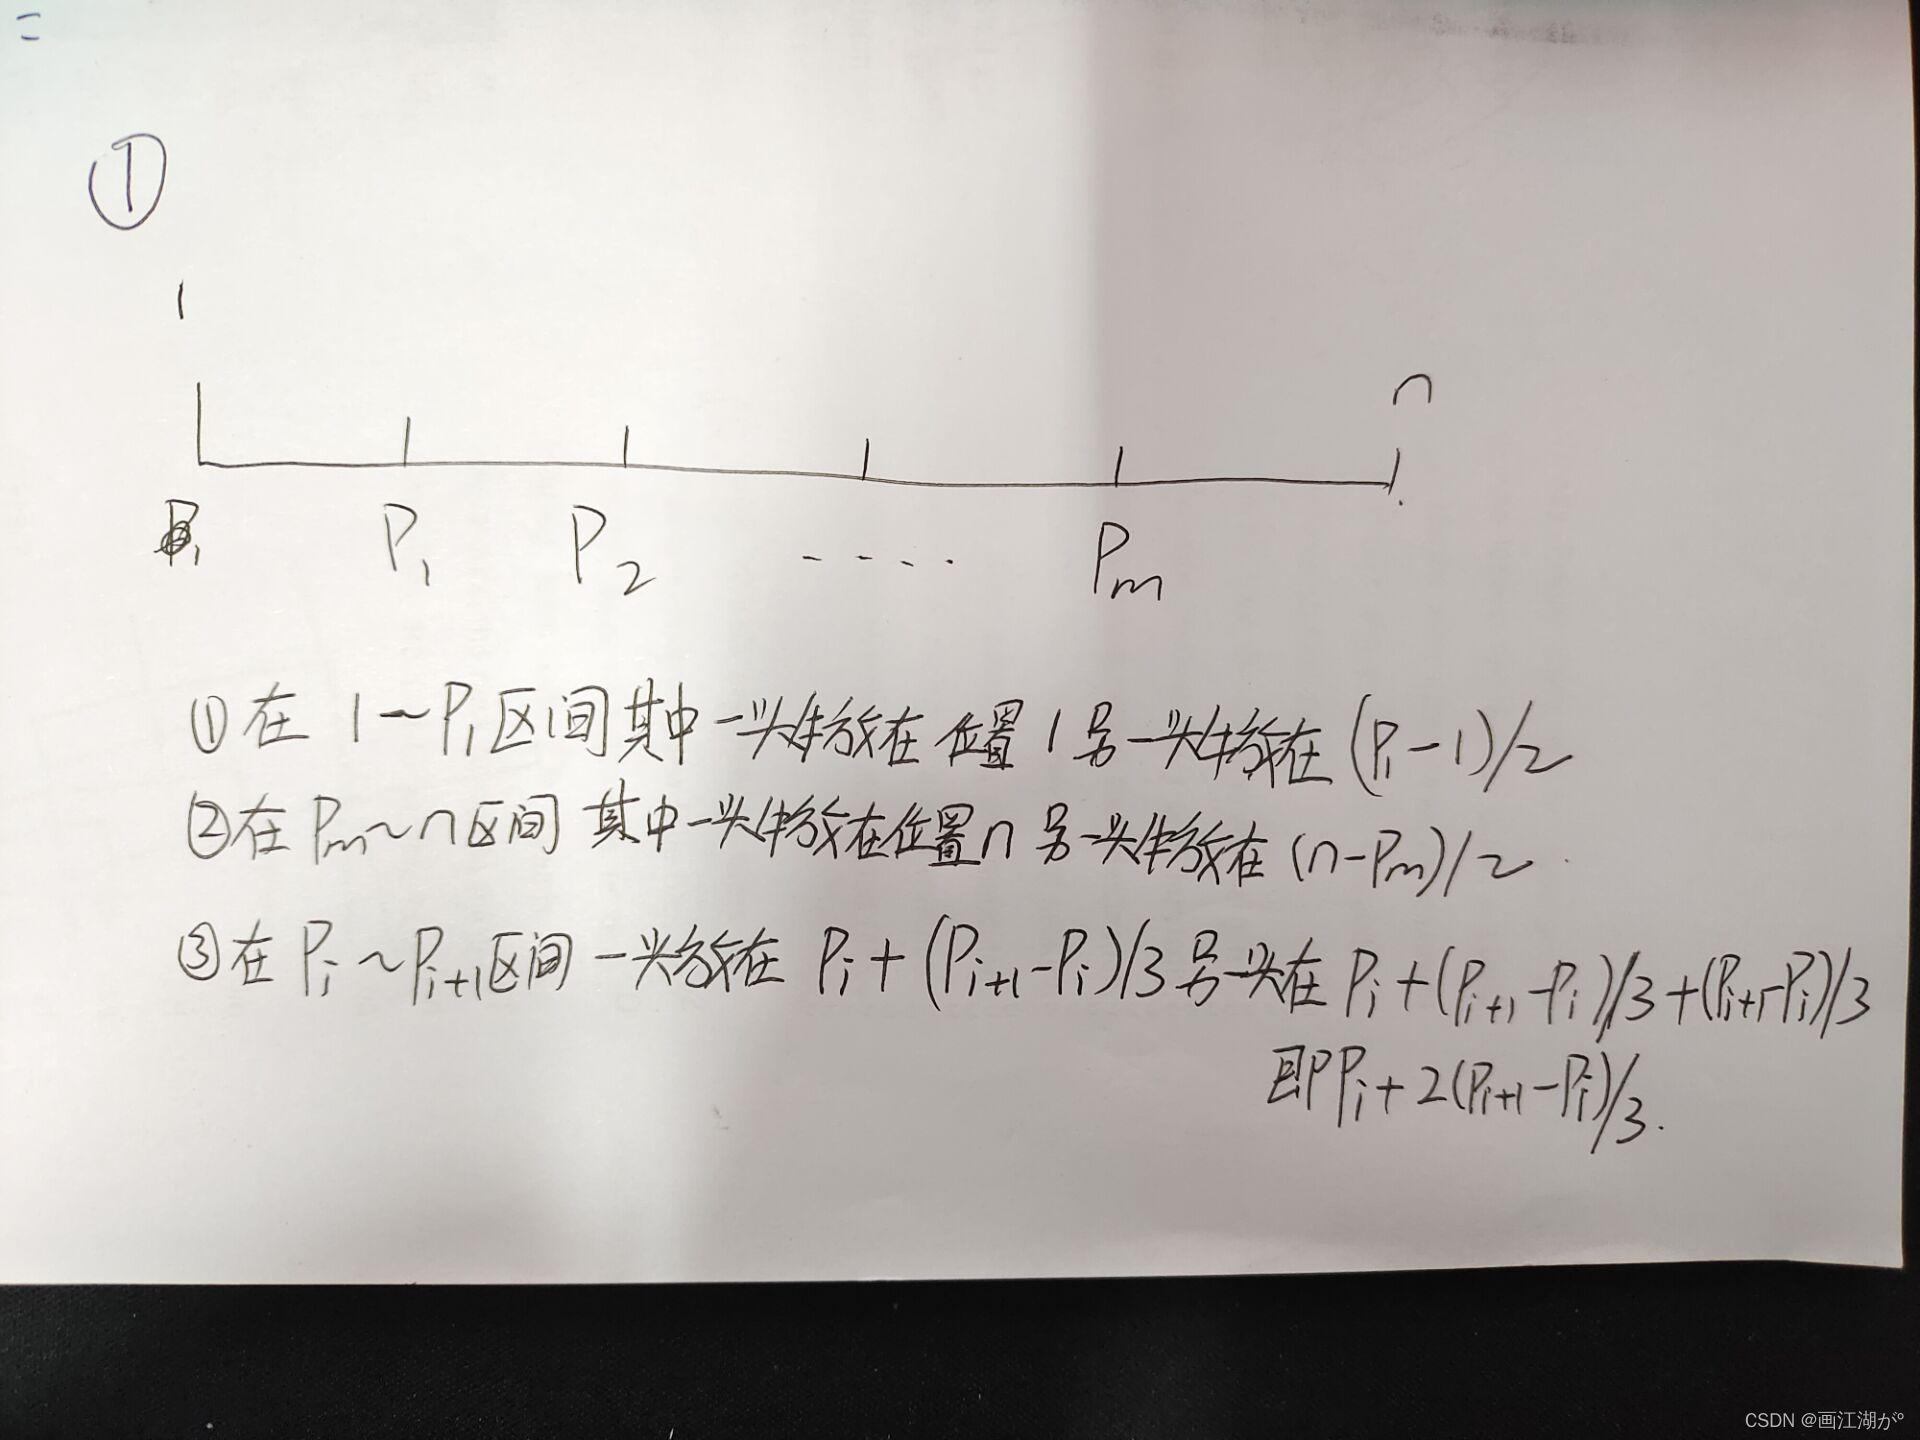 二
①
1
n
P₁ P₂ ---- Pₘ
①在 1～P₁区间其中一头牛放在位置1另一头牛放在(P₁-1)/2
②在Pₘ～n区间 其中一头牛放在位置n另一头牛放在(n-Pₘ)/2
③在Pᵢ～Pᵢ₊₁区间 一头放在 Pᵢ+(Pᵢ₊₁-Pᵢ)/3 另一头在 Pᵢ+(Pᵢ₊₁-Pᵢ)/3+(Pᵢ₊₁-Pᵢ)/3
即Pᵢ+2(Pᵢ₊₁-Pᵢ)/3.
CSDN @画江湖がº